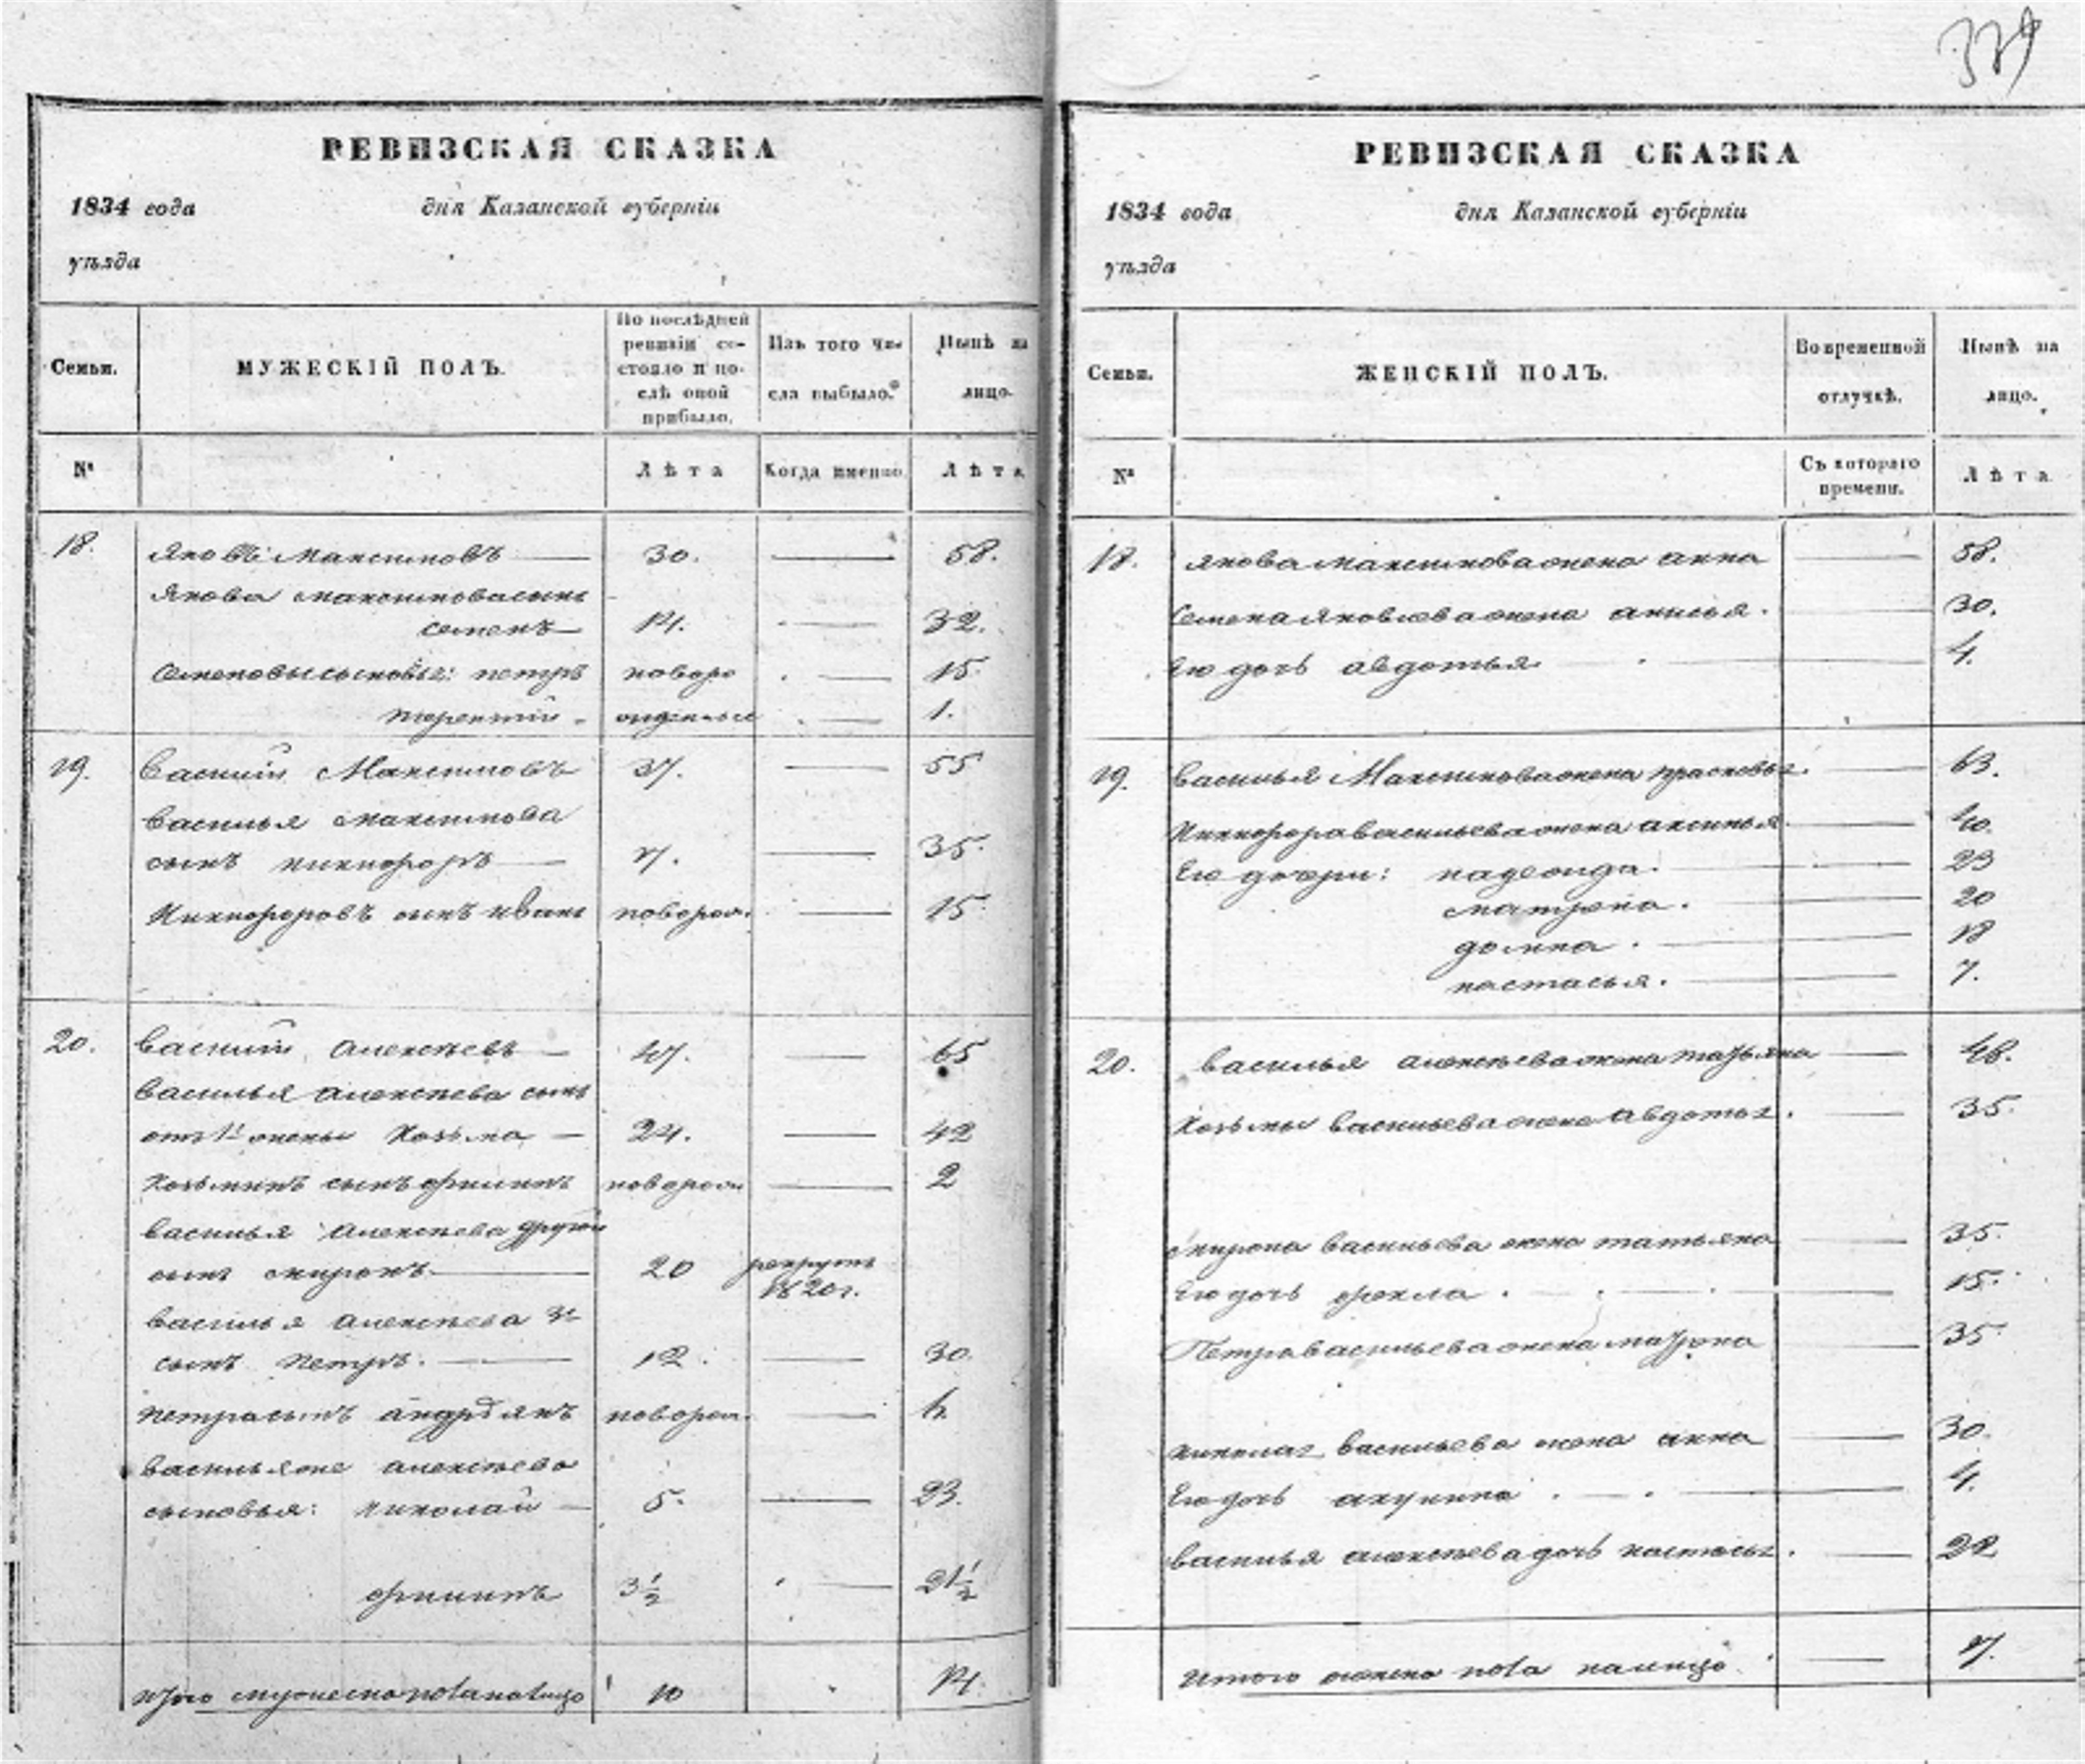 339
РЕВИЗСКАЯ СКАЗКА
1834 года дня Казанской губерніи
уѣзда
Семьи. МУЖЕСКІЙ ПОЛЪ. По послѣдней ревизіи состояло и послѣ оной прибыло. Изъ того числа выбыло. Нынѣ на лицо.
№ Лѣта Когда именно Лѣта
18. Яковъ Максимовъ 30. 58.
Якова Максимова сынъ
Семенъ 14. 32.
Семеновы сыновья: петръ новоро 15.
терентій ожденные 1.
19. Василій Максимовъ 37. 55
Василья Максимова
сынъ никифоръ 35.
Никифоровъ сынъ иванъноворож. 15.
20. Василій Алексѣевъ 47. 65
Василья Алексѣева сынъ
отъ 1й жены Козьма 24. 42
Козьминъ сынъ филипъ новорож 2
Василья Алексѣева другой
сынъ миронъ 20 рекрутъ 1820 г.
Василья Алексѣева 3й
сынъ Петръ. 12. 30.
петра сынъ андрѣянъ новорож.
Василья же Алексѣева
сыновья: николай 5. 23.
филипъ 3½ 21½
Итого мужеска пола на лицо 10 14.
РЕВИЗСКАЯ СКАЗКА
1834 года дня Казанской губерніи
уѣзда
Семьи. ЖЕНСКІЙ ПОЛЪ. Во временной отлучкѣ. Нынѣ на лицо.
№ Съ котораго времени. Лѣта
18. Якова Максимова жена анна 58.
Семена Яковлева жена анисья. 30.
Его дочь авдотья 4.
19. Василья Максимова жена прасковья. 63.
Никифора васильева жена аксинья 40.
Его дочери: надежда. 23
матрена. 20
домна. 18
настасья. 7.
20. Василья алексѣева жена татьяна 48.
Козьмы васильева жена авдотья. 35.
Мирона васильева жена татьяна 35.
Его дочь фекла. 15.
Петра васильева жена матрона 35
Николая васильева жена анна 30.
Его дочь акулина 4.
Василья алексѣева дочь настасья. 22
Итого женска пола налицо